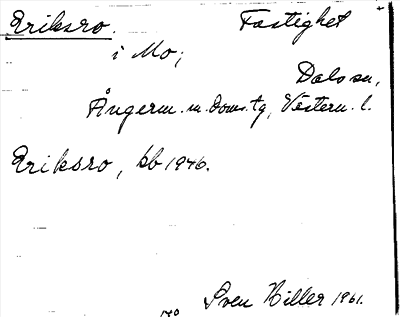 Eriksro. Fastighet
i Mo;
Dals sn,
Ångerm. m. doms.tg, Västern. l.
Eriksro, kb 1946.
Sven Hiller 1961.